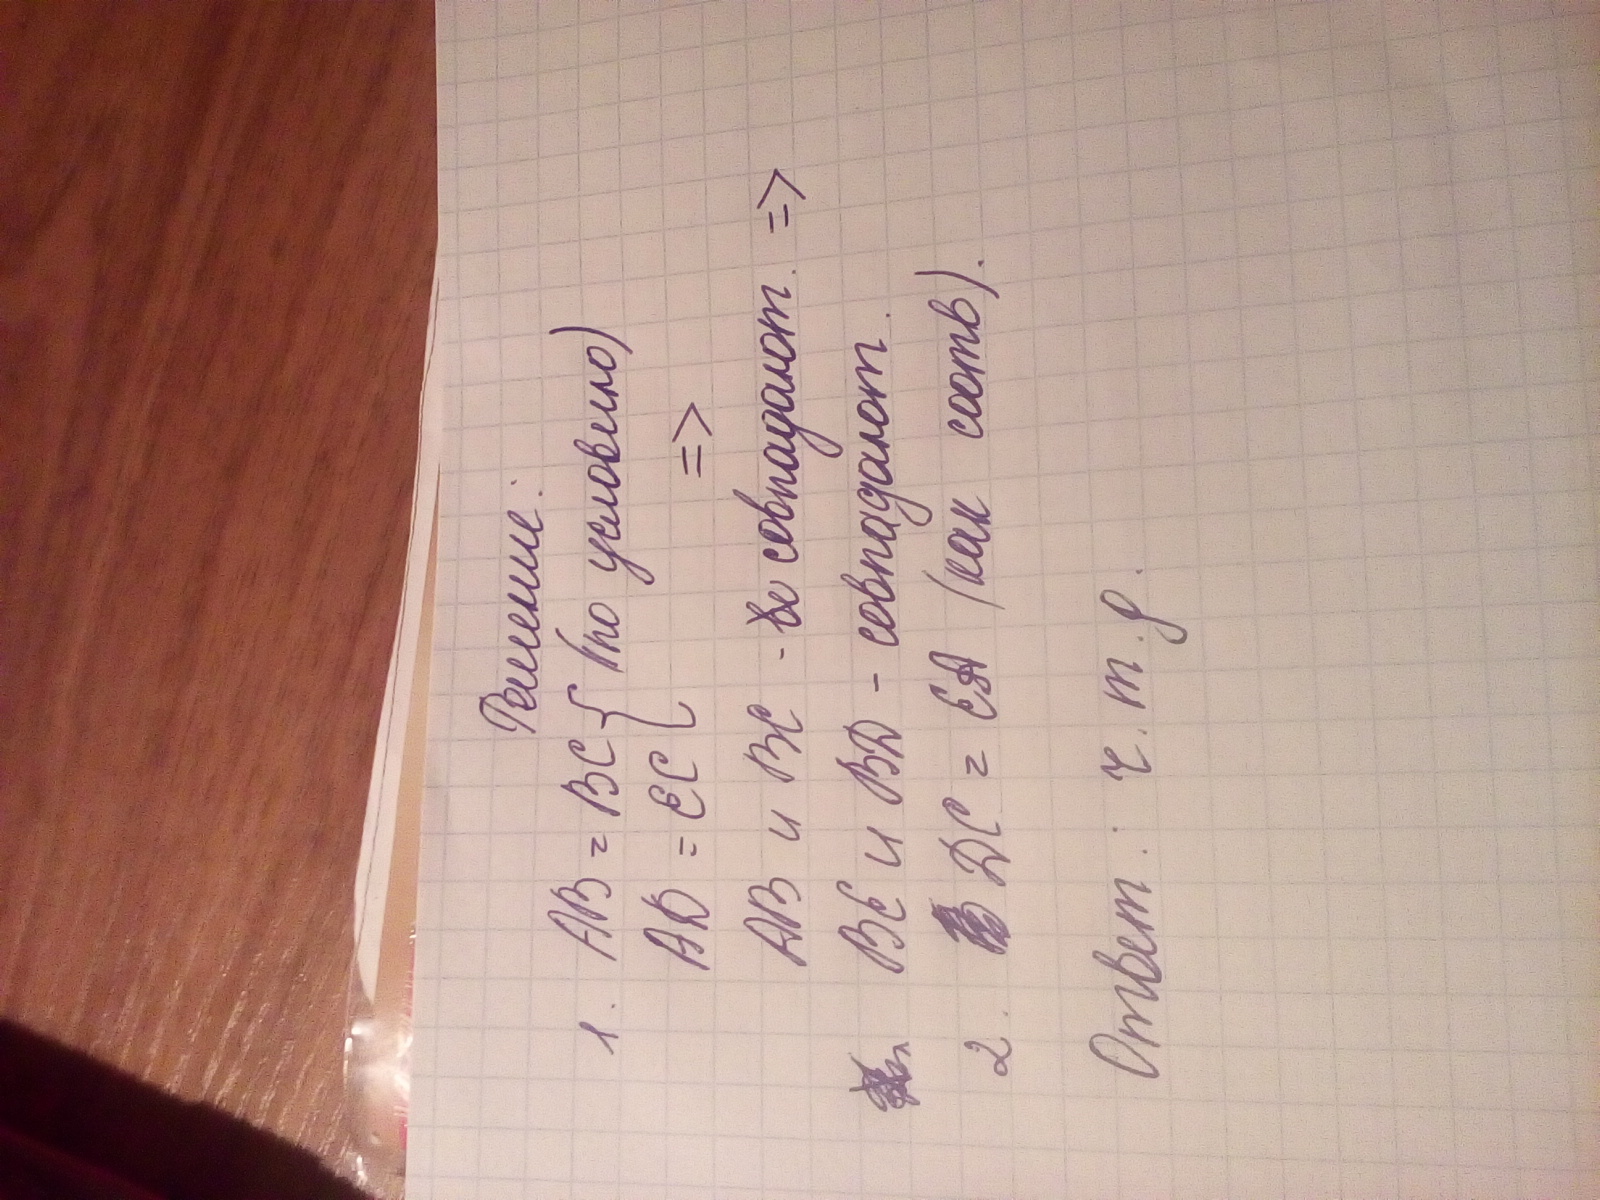 Решение:
1. AB = BC } (по условию)
AD = EC } =>
AB и BC - совпадают. =>
BE и BD - совпадают.
2. DC = EA (как соотв).
Ответ. ч. т. д.